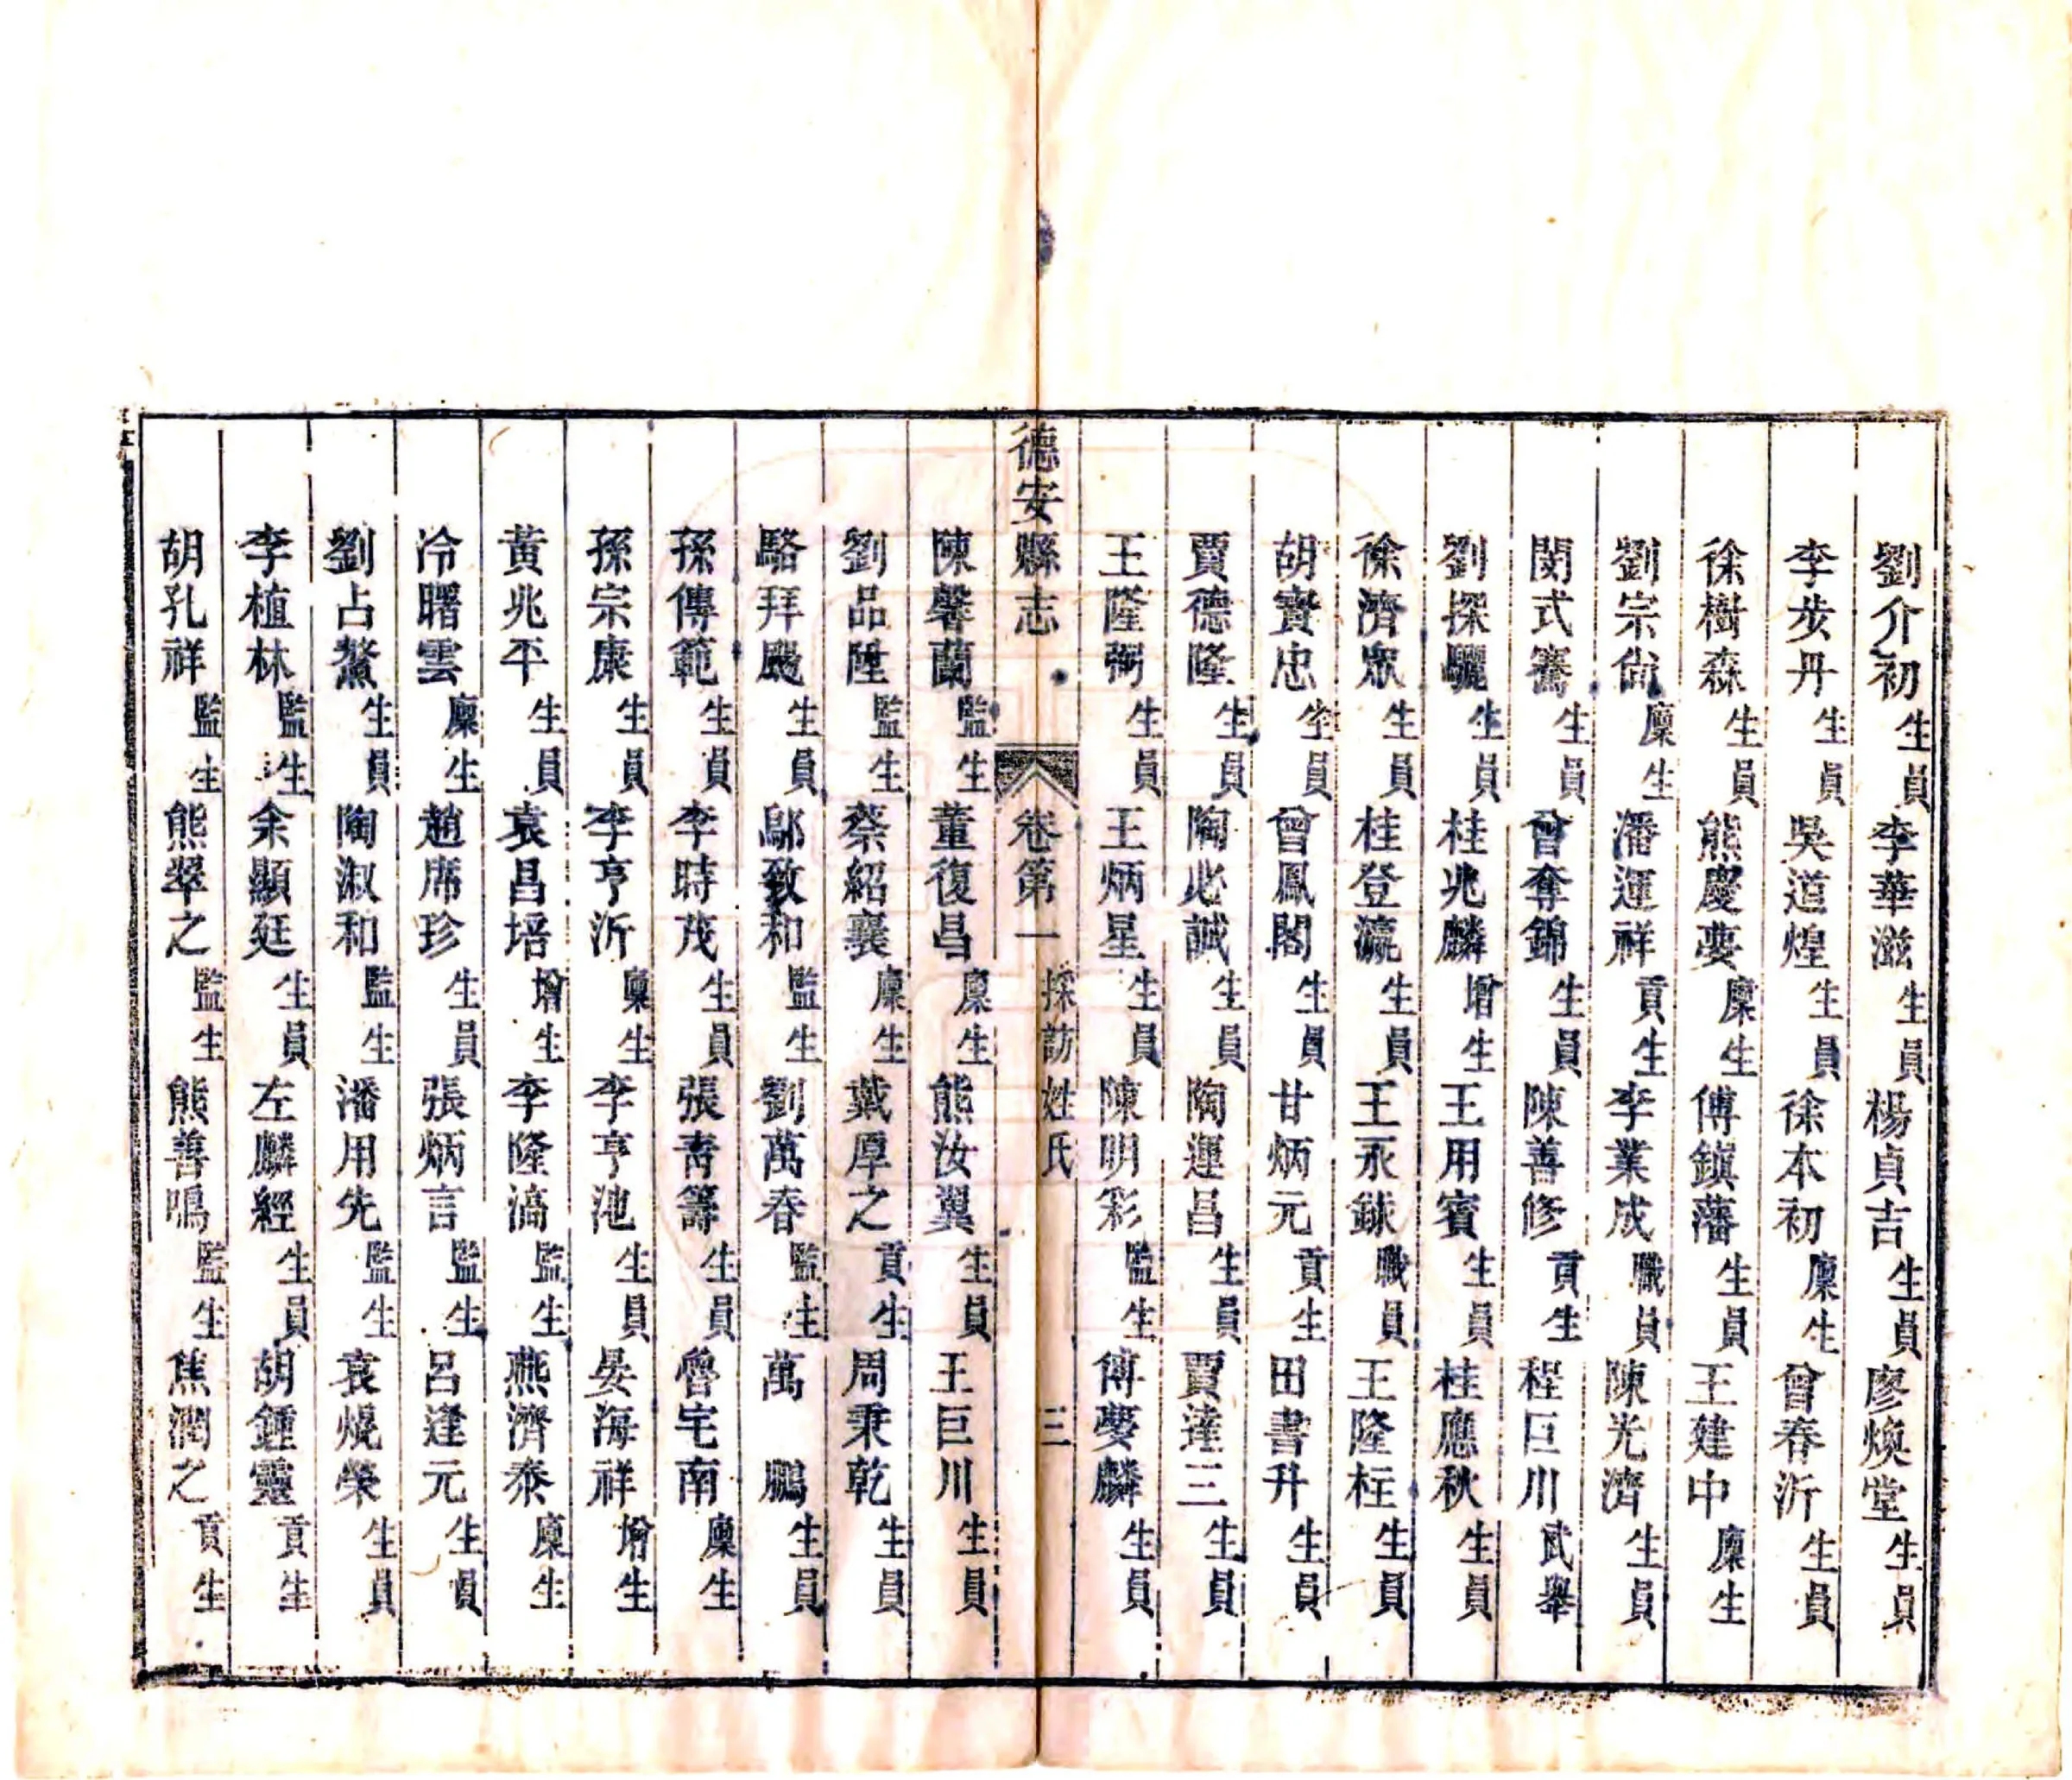 劉介初生員李華滋生員楊貞吉生員廖煥堂生員
李步丹生員吳道煌生員徐本初廩生曾春沂生員
徐樹森生員熊慶夢廩生傅鎮藩生員王建中廩生
劉宗尙廩生潘運祥貢生李業成職員陳光濟生員
閔式騫生員曾奪錦生員陳善修貢生程巨川武舉
劉探驪生員桂兆麟增生王用賓生員桂應秋生員
徐濟眾生員桂登瀛生員王永銾職員王隆枉生員
胡寶忠生員曾鳳閣生員甘炳元貢生田書升生員
賈德隆生員陶必誠生員陶運昌生員賈達三生員
王隆弼生員王炳星生員陳明彩監生傅夢麟生員
德安縣志 卷第一 採訪姓氏 三
陳馨蘭監生董復昌廩生熊汝翼生員王巨川生員
劉品陞監生蔡紹襄廩生戴厚之貢生周秉乾生員
駱拜颺生員鄔致和監生劉萬春監生萬鵬生員
孫傳範生員李時茂生員張壽籌生員魯宅南廩生
孫宗康生員李亨沂廩生李亨池生員晏海祥增生
黃兆平生員袁昌培增生李隆滈監生燕濟泰廩生
冷曙雲廩生趙席珍生員張炳言監生呂逢元生員
劉占鰲生員陶淑和監生潘用先監生袁焜榮生員
李植林監生余顯廷生員左麟經生員胡鍾靈貢生
胡孔祥監生熊翠之監生熊善鳴監生焦潤之貢生